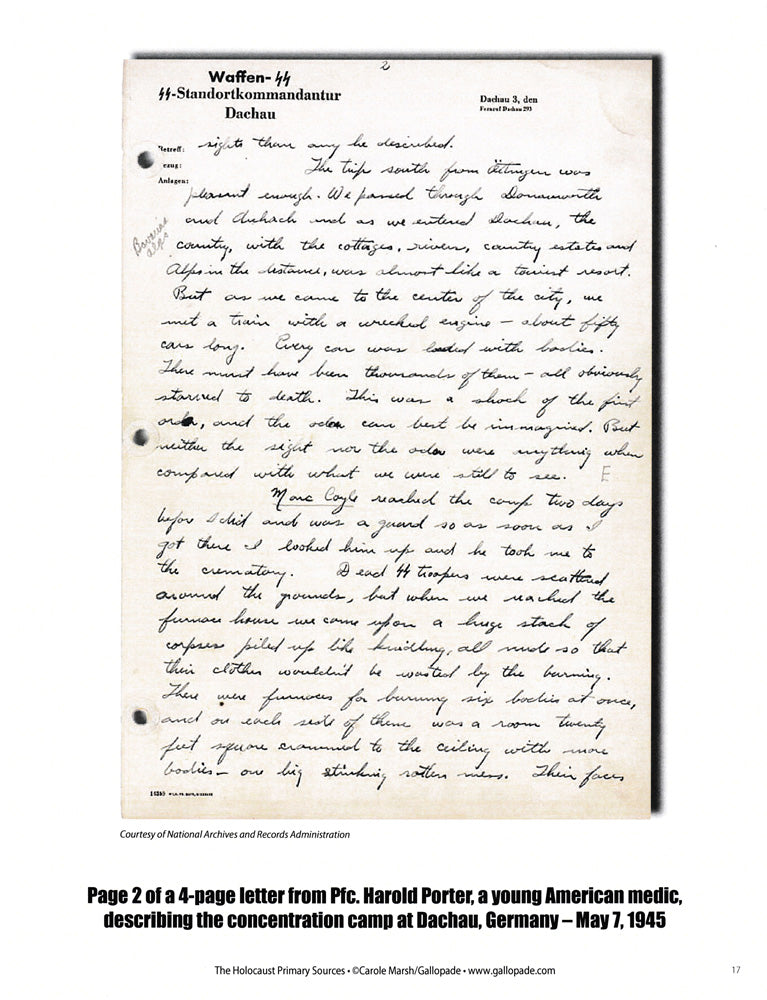 2
Waffen-SS
SS-Standortkommandantur
Dachau
Dachau 3, den
Fernruf Dachau 293
Betreff:
Bezug:
Anlagen:
sights than any he described.
The trip south from Öttingen was
pleasant enough. We passed through Donauworth
and Aichach and as we entered Dachau, the
country, with the cottages, rivers, country estates and
Bavarian
Alps
Alps in the distance, was almost like a tourist resort.
But as we came to the center of the city, we
met a train with a wrecked engine – about fifty
cars long. Every car was loaded with bodies.
There must have been thousands of them – all obviously
starved to death. This was a shock of the first
order, and the odor can best be immagined. But
neither the sight nor the odor were anything when
compared with what we were still to see. E
Marc Coyle reached the camp two days
before I did and was a guard so as soon as I
got there I looked him up and he took me to
the crematory. Dead SS troopers were scattered
around the grounds, but when we reached the
furnace house we came upon a huge stack of
corpses piled up like kindling, all nude so that
their clothes wouldn't be wasted by the burning.
There were furnaces for burning six bodies at once,
and on each side of them was a room twenty
feet square crammed to the ceiling with more
bodies – one big stinking rotten mess. Their faces
Courtesy of National Archives and Records Administration
Page 2 of a 4-page letter from Pfc. Harold Porter, a young American medic,
describing the concentration camp at Dachau, Germany – May 7, 1945
The Holocaust Primary Sources • ©Carole Marsh/Gallopade • www.gallopade.com
17